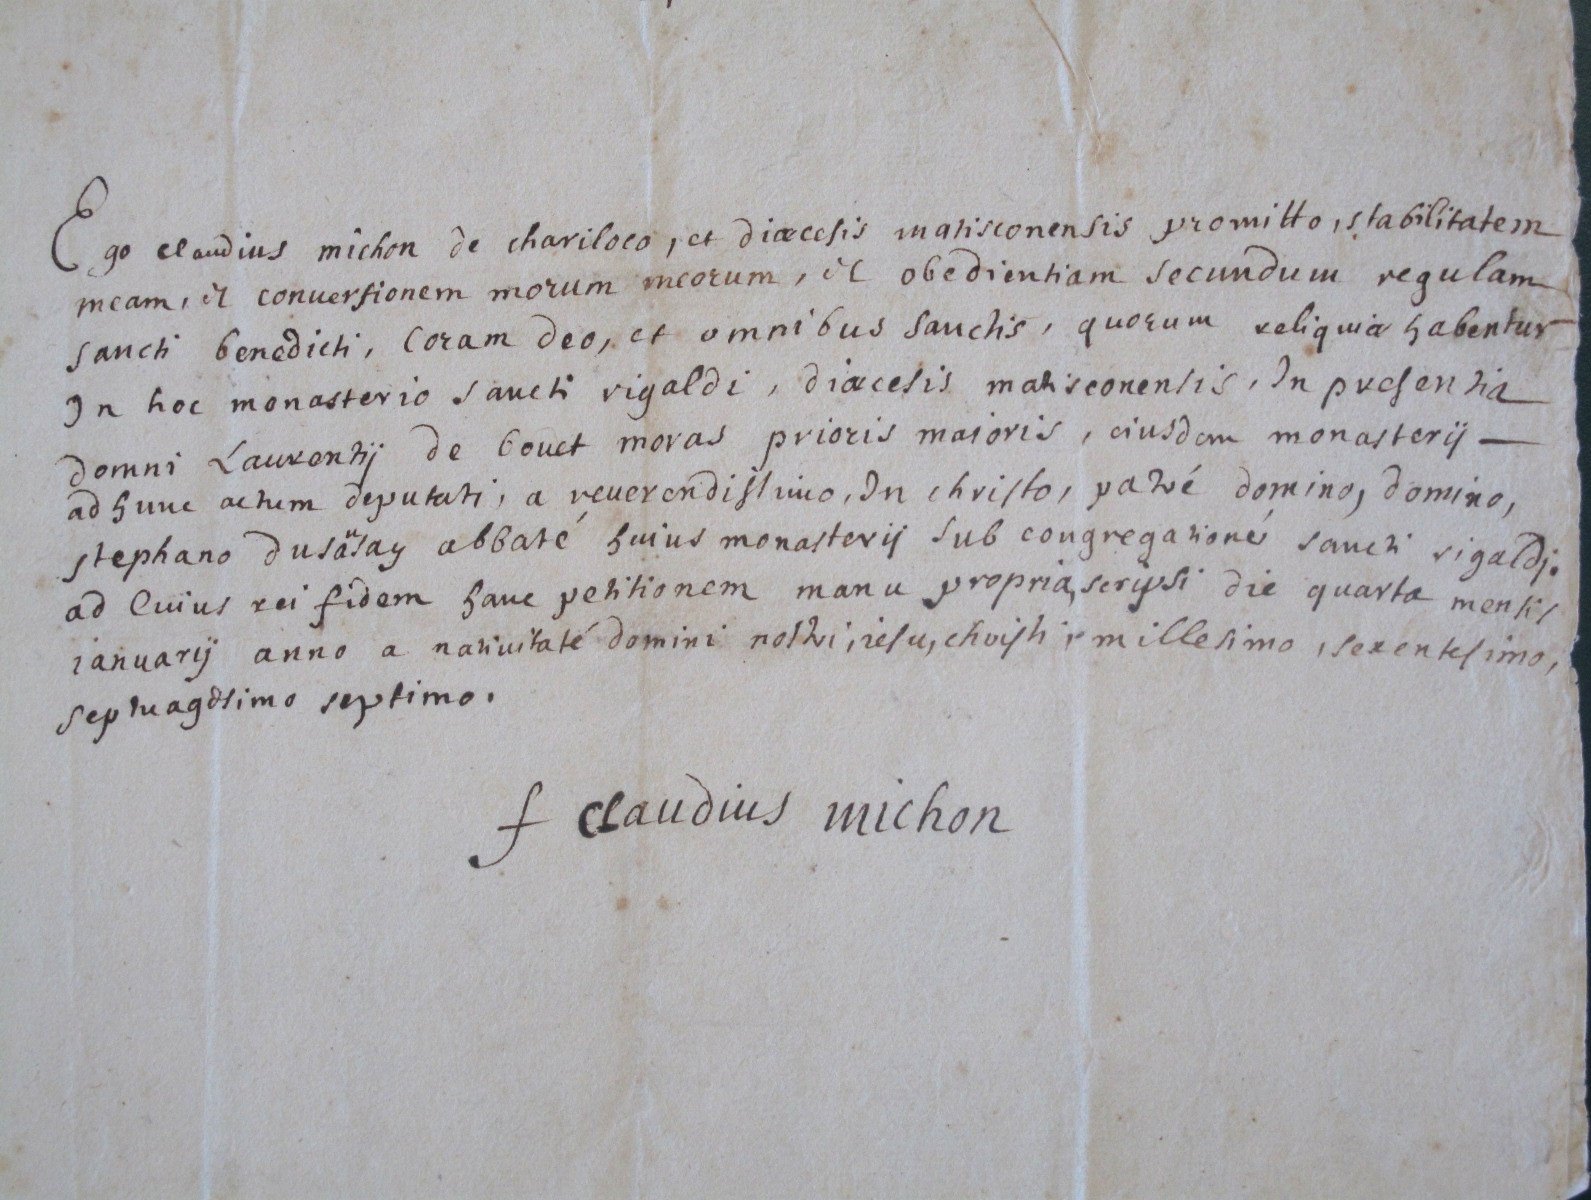 Ego claudius michon de chariloco, et diœcesis matisconensis promitto, stabilitatem
meam, et conuersionem morum meorum, et obedientiam secundum regulam
sancti benedicti, Coram deo, et omnibus sanctis, quorum reliquiæ habentur
In hoc monasterio sancti rigaldi, diœcesis matisconensis, In presentia
domni Laurentij de bouet moras prioris maioris, eiusdem monasterij
ad hunc actum deputati, a reuerendissimo, In christo, patré domino, domino,
stephano abbaté huius monasterij sub congregationé sancti rigaldj.
ad Cuius rei fidem hanc petitionem manu propria, scripsi die quarta mensis
ianuarij anno a natiuitaté domini nostri, iesu, christi, millesimo, sexentesimo,
septuagesimo septimo.
f claudius michon